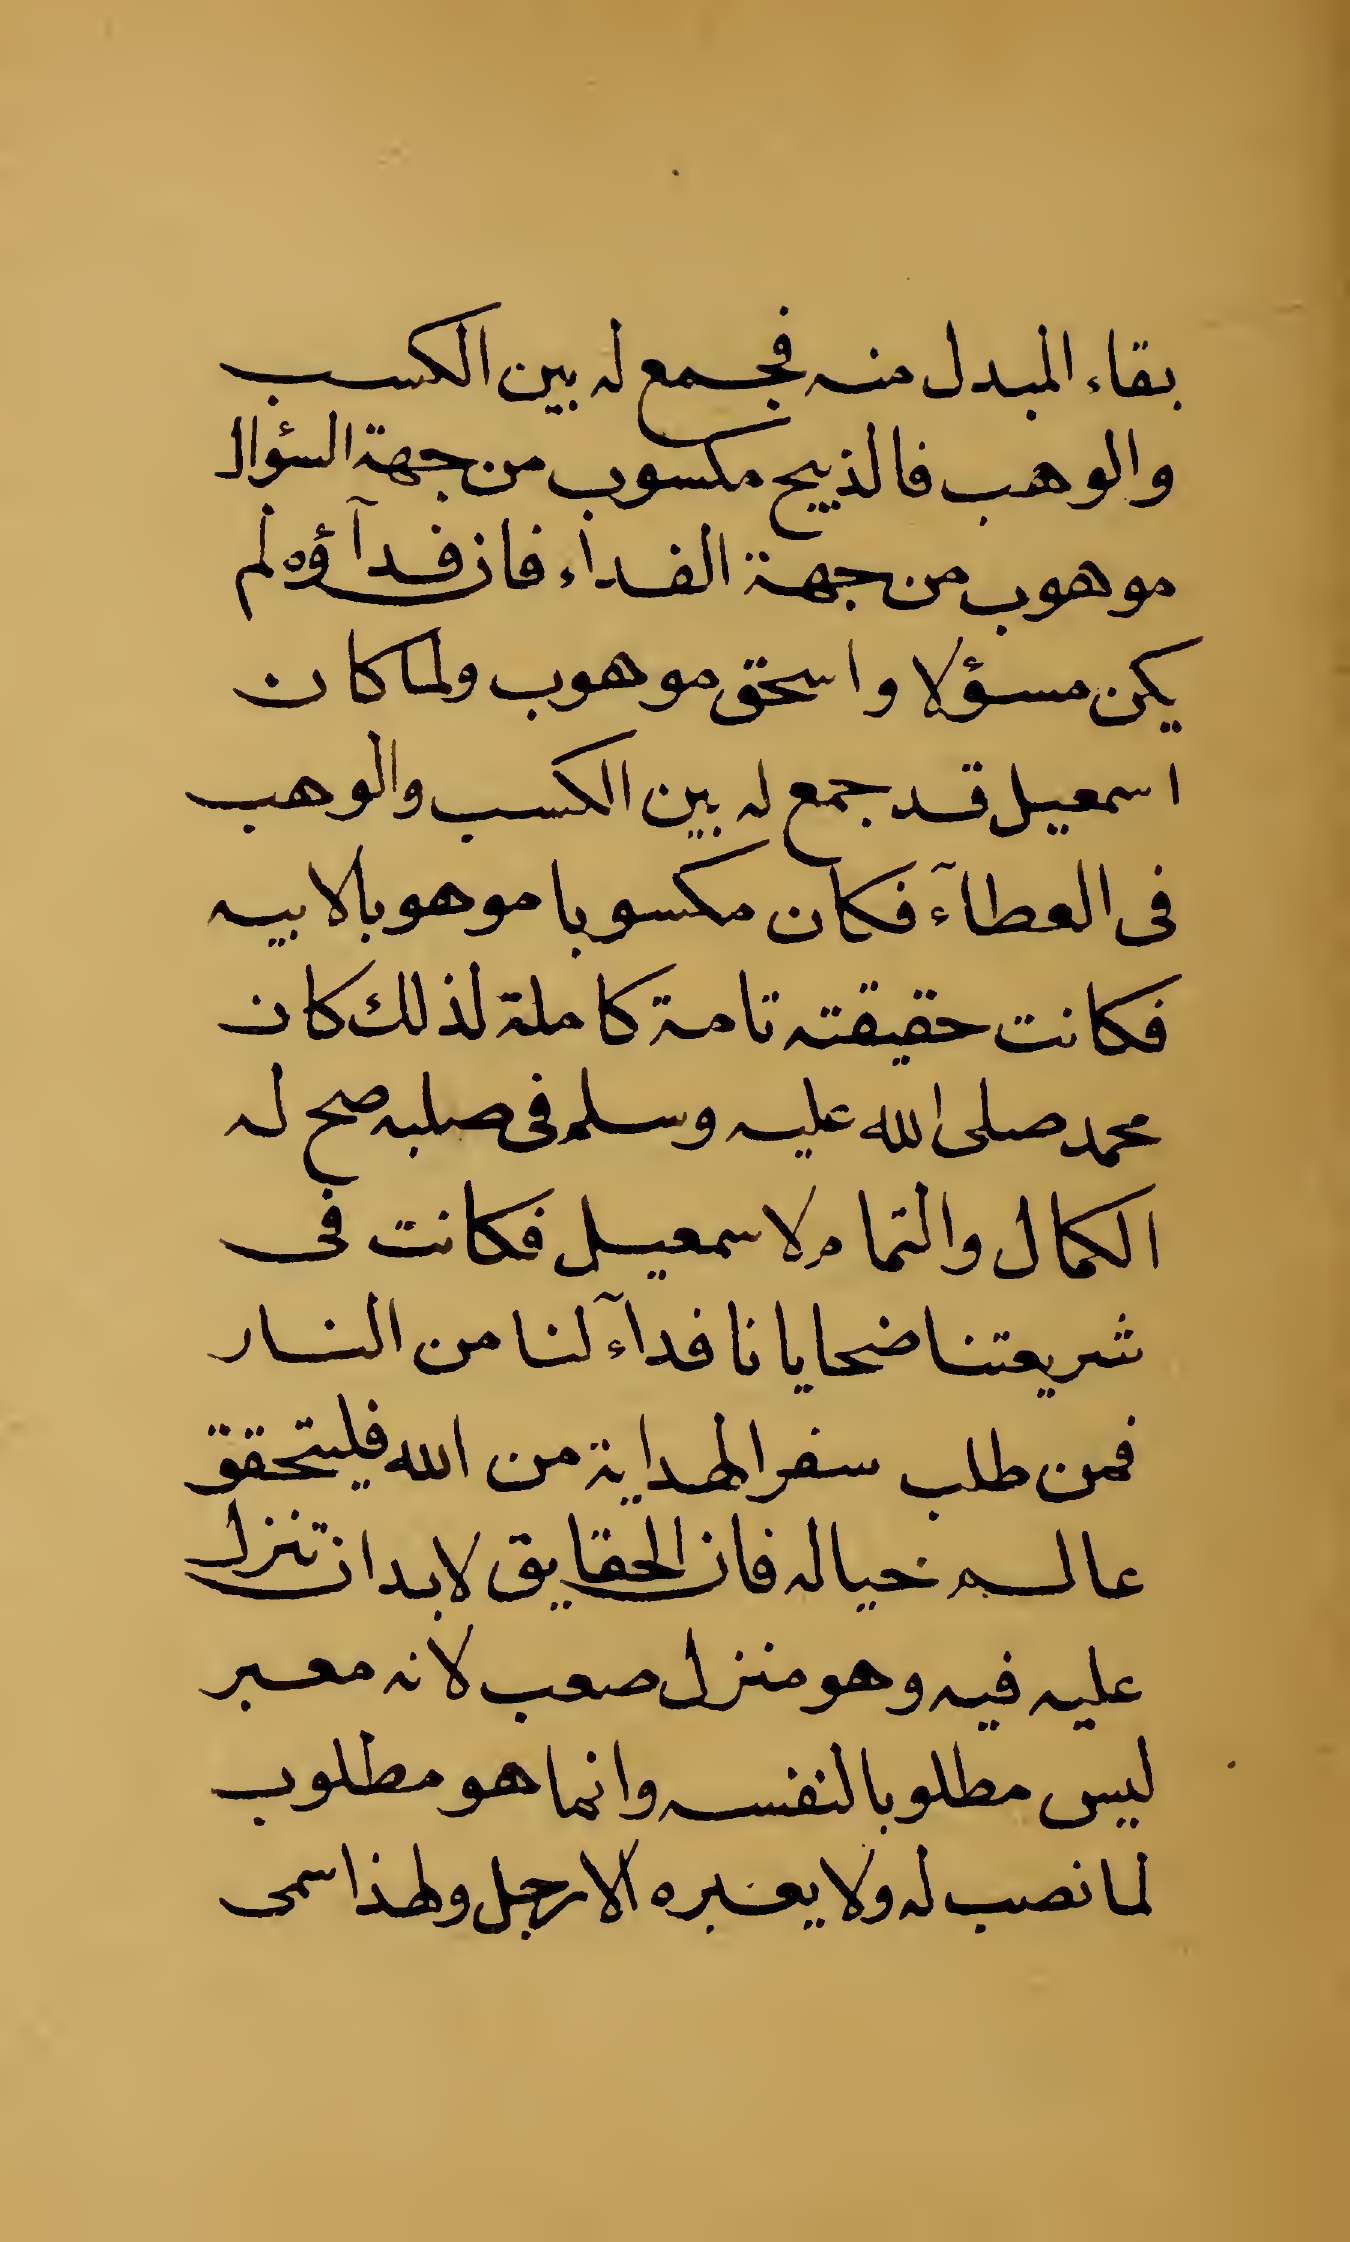 بقاء المبدل منه فجمع له بين الكسب
والوهب فالذبيح مكسوب من جهة السؤال
موهوب من جهة الفداء فان فدآؤه لم
يكن مسؤلا واسحق موهوب ولما كان
اسمعيل قد جمع له بين الكسب والوهب
فى العطآء فكان مكسوبا موهوبا لابيه
فكانت حقيقته تامة كاملة لذلك كان
محمد صلى الله عليه وسلم فى صلبه صح له
الكمال والتمام لاسمعيل فكانت فى
شريعتنا ضحايانا فدآء لنا من النار
فمن طلب سفر الهداية من الله فليتحقق
عالم خياله فان الحقايق لابد ان تنزل
عليه فيه وهو منزل صعب لانه معبر
ليس مطلوبا لنفسه وانما هو مطلوب
لما نصب له ولا يعبره الا رجل ولهذا سمى